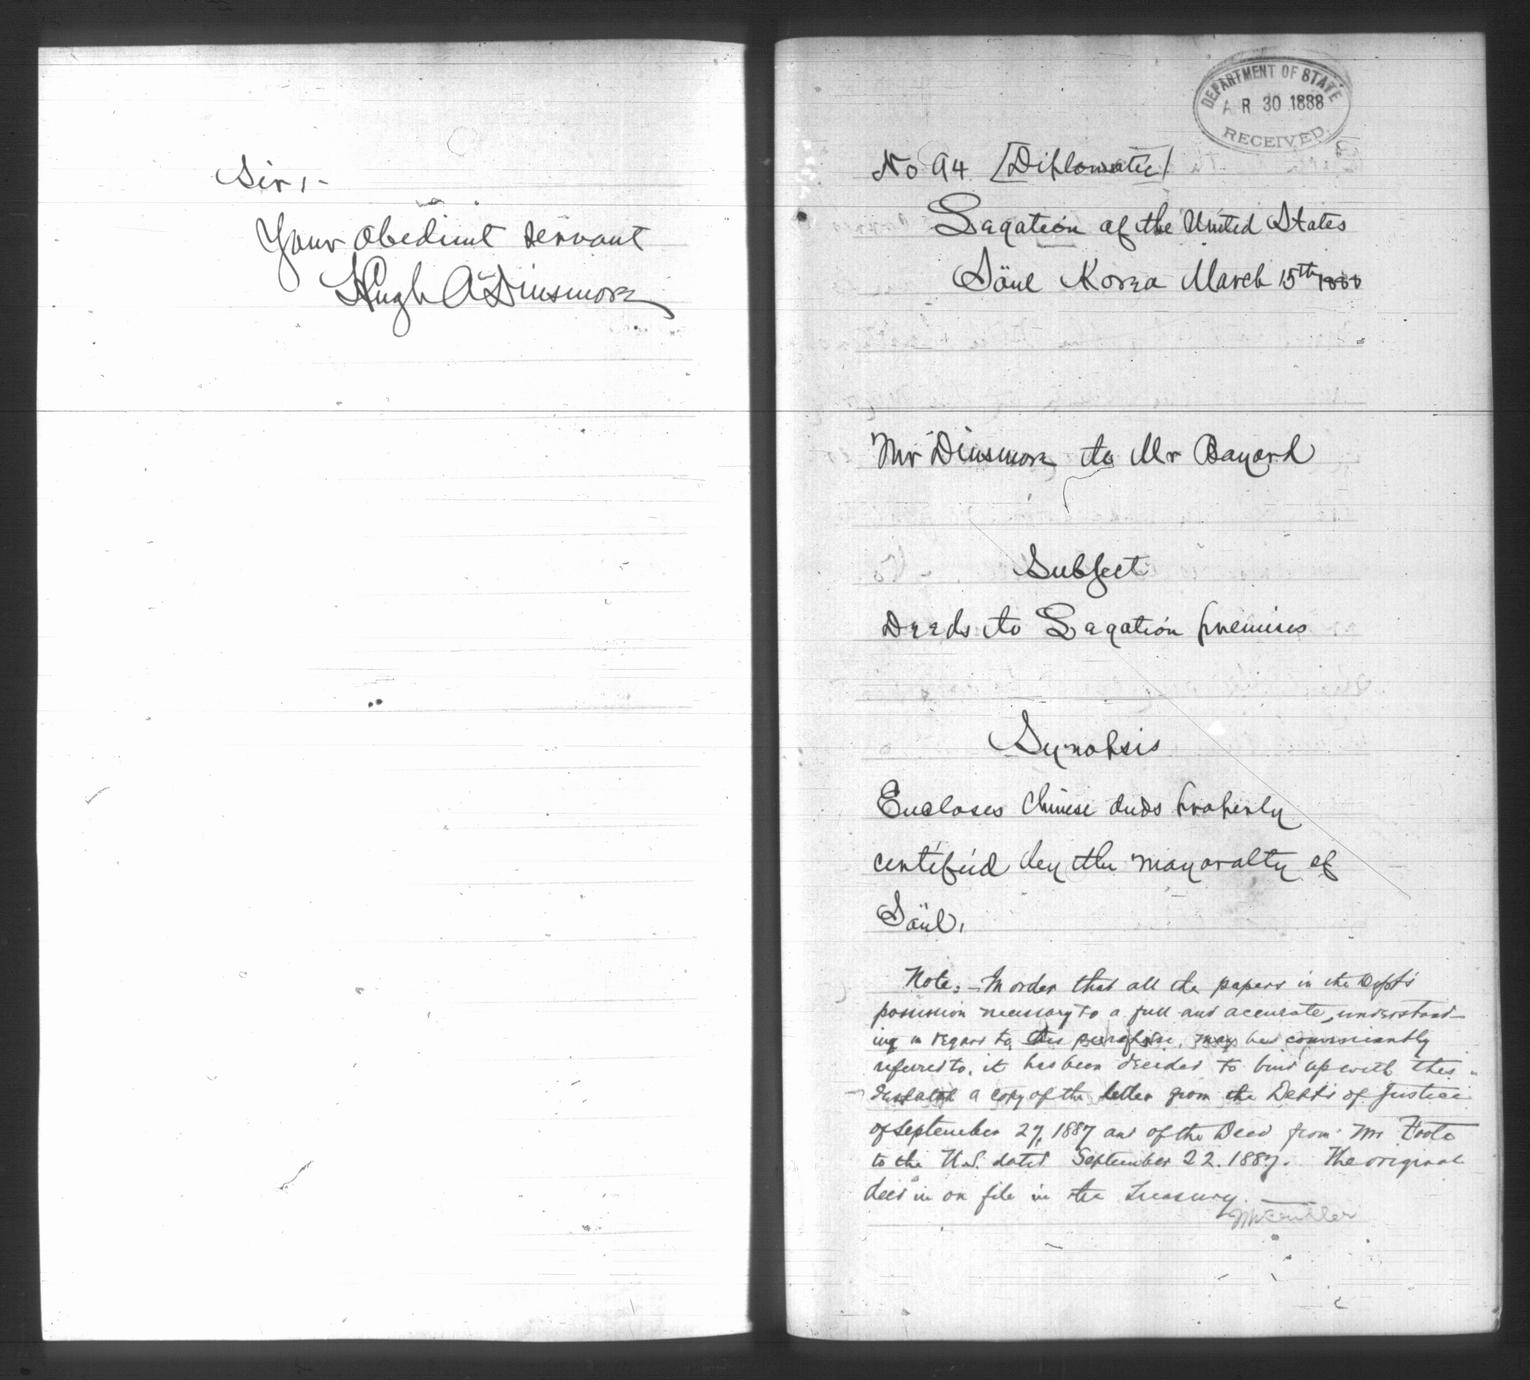 Sir,-
Your obedient servant
Hugh A Dinsmore
DEPARTMENT OF STATE
AR 30 1888
RECEIVED.
No 94 [Diplomatic]
Legation of the United States
Söul Korea March 15th 1888
Mr Dinsmore to Mr Bayard
Subject
Deeds to Legation premises
Synopsis
Encloses Chinese deeds properly
certified by the mayoralty of
Söul.
Note:- In order that all the papers in the Dept's
possession necessary to a full and accurate understand-
ing in regard to this purchase, may be conveniently
referred to, it has been decided to bind up with this
a copy of the letter from the Dept's of Justice
of September 27, 1887 and of the Deed from Mr Foote
to the U.S. dated September 22. 1887. The original
deed is on file in the Treasury.